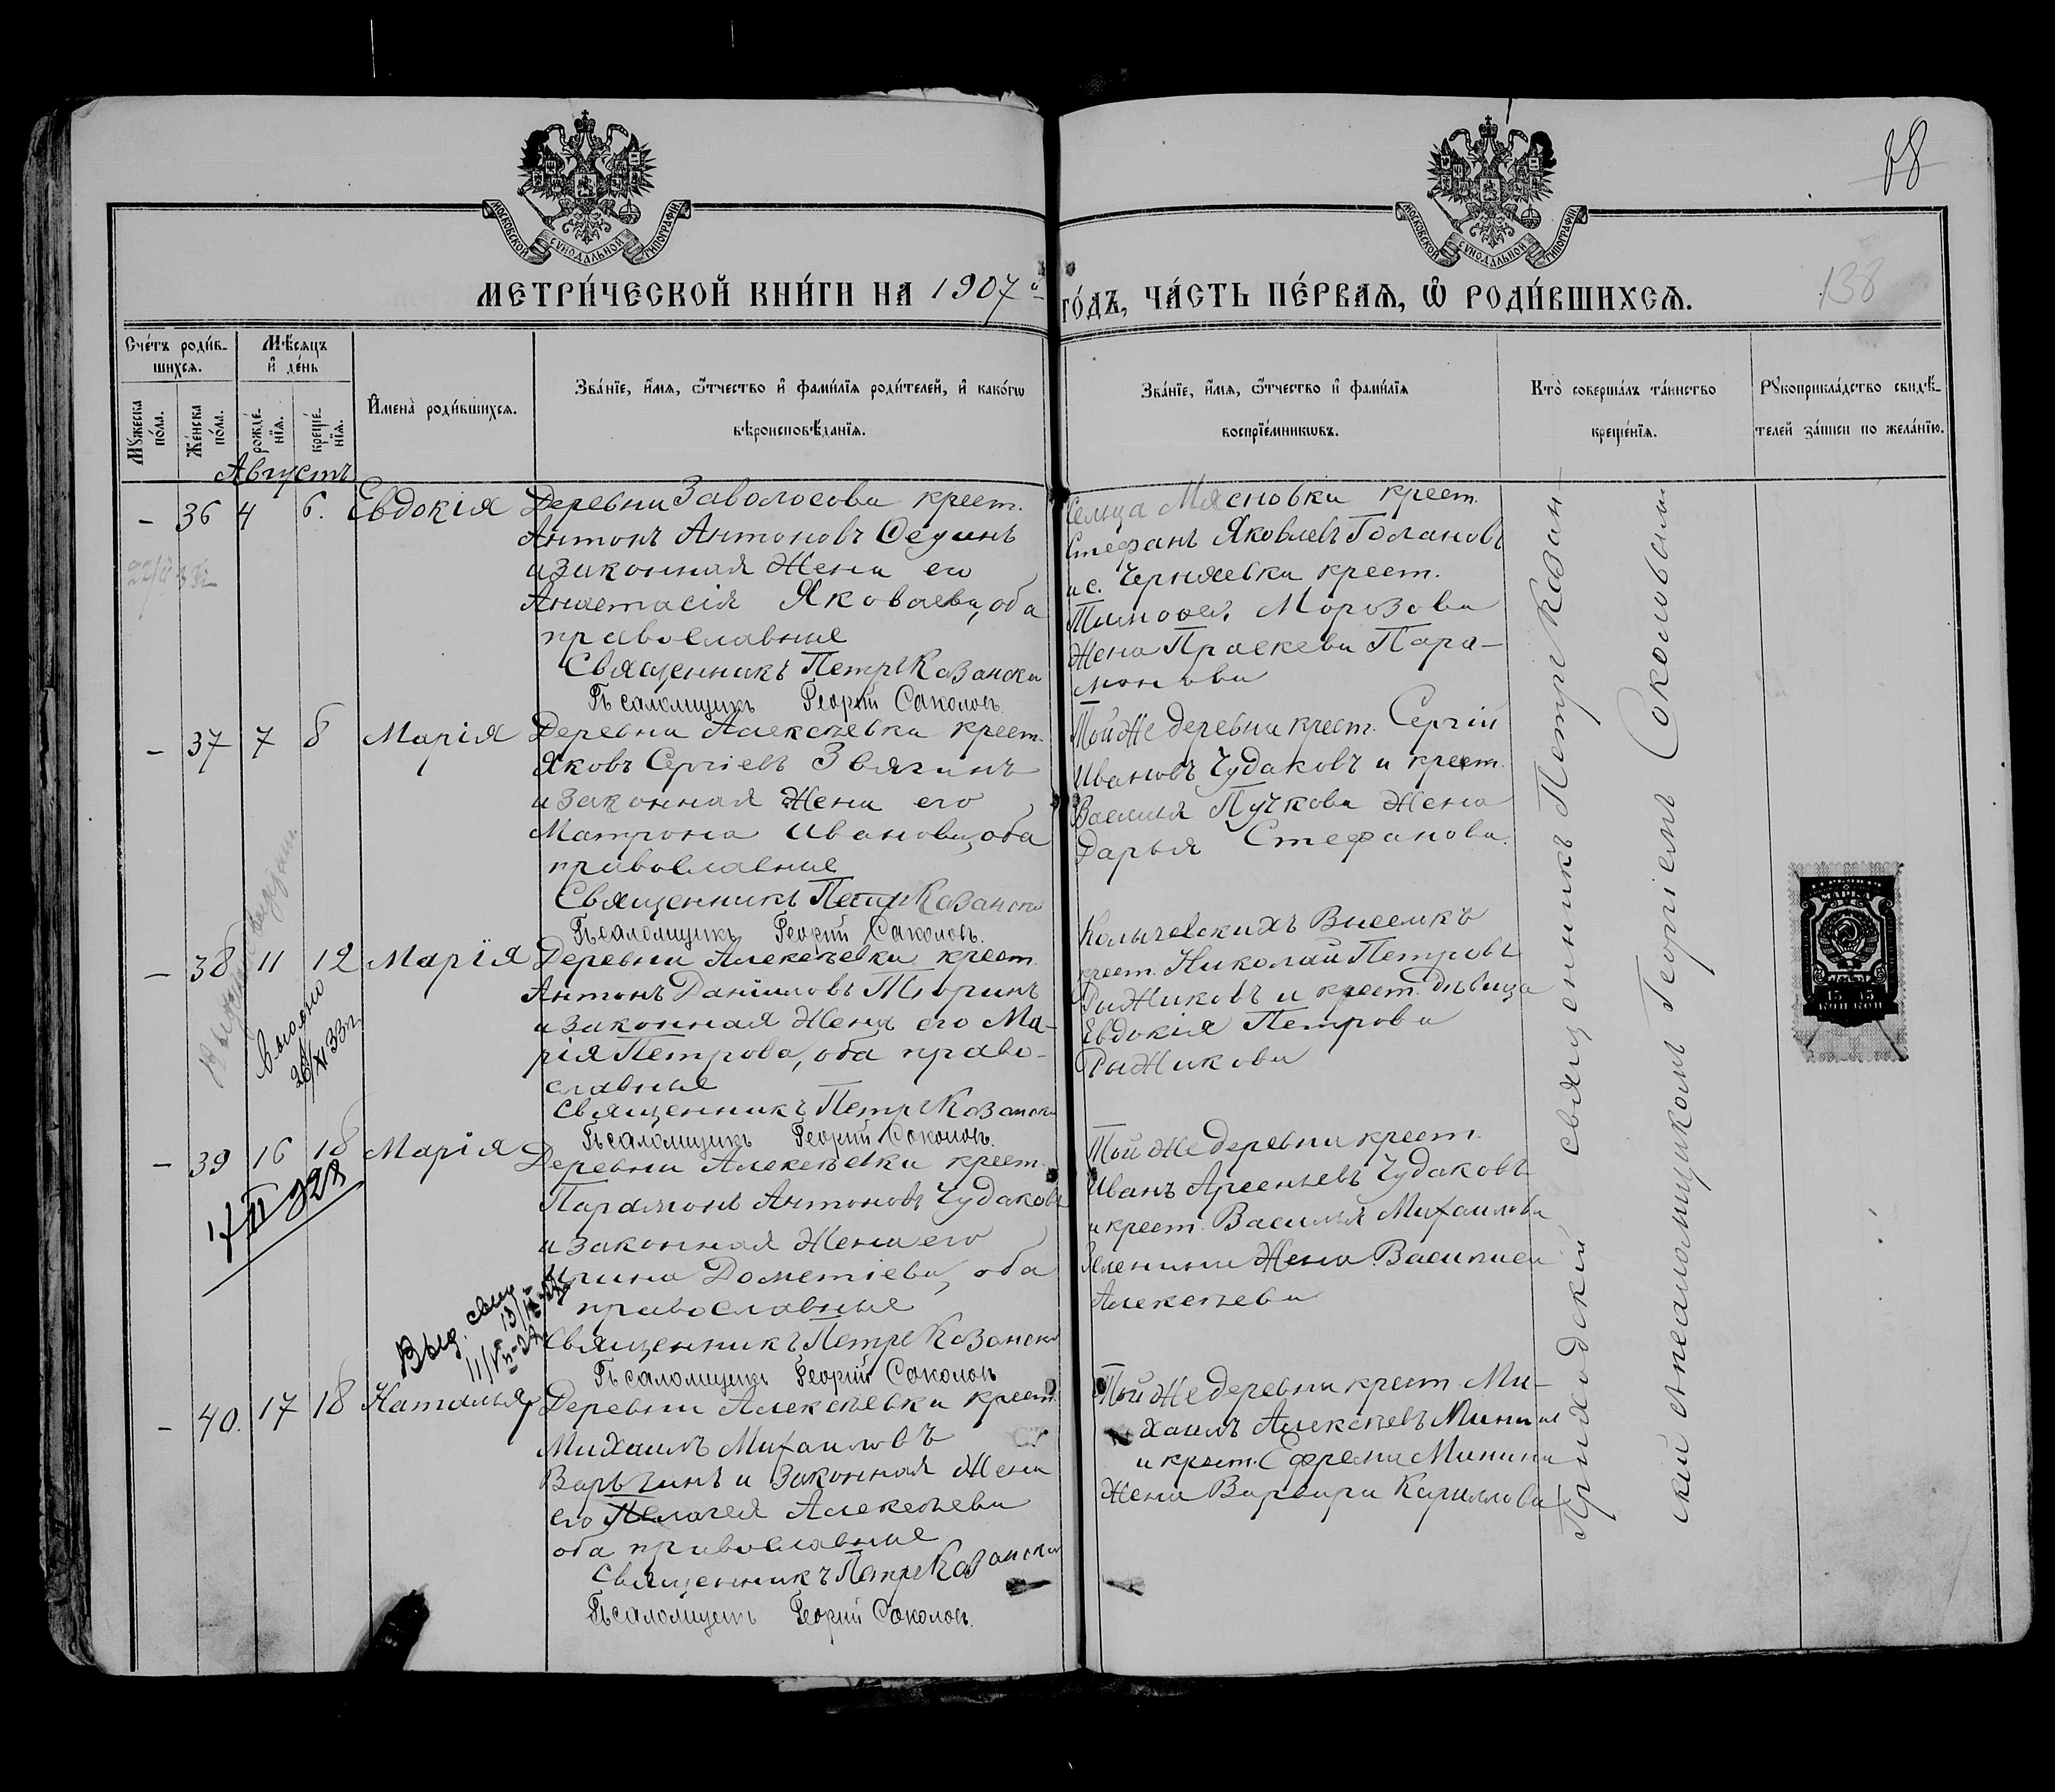 МОСКОВСКОЙ СѴНОДАЛЬНОЙ ТИПОГРАФІИ
МОСКОВСКОЙ СѴНОДАЛЬНОЙ ТИПОГРАФІИ
138
МЕТРИ́ЧЕСКОЙ КНИ́ГИ НА 1907 й
ГО́ДЪ, ЧА́СТЬ ПЕ́РВАѦ, Ѡ҆ РОДИ́ВШИХСѦ.
Сче́тъ роди́в-
шихсѧ.
Мꙋ́жеска по́ла.
Же́нска по́ла.
Мѣ́сѧцъ и҆ де́нь
рожде́-нїѧ.
креще́-нїѧ.
И҆мена̀ роди́вшихсѧ.
Зва́нїе, и҆́мѧ, ѻ҆́тчество и҆ фами́лїѧ роди́телей, и҆ како́гѡ
вѣроисповѣ́данїѧ.
Зва́нїе, и҆́мѧ, ѻ҆́тчество и҆ фами́лїѧ
воспрїе́мникѡвъ.
Кто̀ соверша́лъ та́инство
креще́нїѧ.
Рꙋкоприкла́дство свидѣ́-
телей за́писи по жела́нїю.
Августъ
- 36 4 6. Евдокія
Деревни Заволосова крест.
Антонъ Антоновъ Седынъ
и законная жена его
Анастасія Яковлева, оба
православные
Священникъ Петръ Казански
Псаломщикъ Георгій Соколовъ.
Сельца Мясновки крест.
Стефанъ Яковлевъ Голановъ
и с. Черняевки крест.
Тимофея Морозова
жена Праскева Пара-
монова
- 37 7 8 Марія
Деревни Алексѣевки крест.
Яковъ Сергіевъ Звягинъ
и законная жена его
Матрона Иванова, оба
православные
Священникъ Петръ Казански
Псаломщикъ Георгій Соколовъ.
Той же деревни крест. Сергій
Ивановъ Чудаковъ и крест.
Василія Пучкова жена
Дарья Стефанова.
- 38 11 12 Марія
Деревни Алексѣевки крест.
Антонъ Даніиловъ Тюринъ
и законная жена его Ма-
рія Петрова, оба право-
славные
Священникъ Петръ Казански
Псаломщикъ Георгій Соколовъ.
Колычевскихъ Выселкъ
крест. Николай Петровъ
Рыжиковъ и крест. дѣвица
Евдокія Петрова
Рыжикова
- 39 16 18 Марія
Деревни Алексѣевки крест.
Парамонъ Антоновъ Чудаковъ
и законная жена его
Ирина Дометіева, оба
православные
Священникъ Петръ Казански
Псаломщикъ Георгій Соколовъ
Той же деревни крест.
Иванъ Арсеньевъ Чудаковъ
и крест. Василья Михаилова
Зеленина жена Василиса
Алексѣева
Выд. свид.
- 40. 17 18 Наталья
Деревни Алексѣевки крест.
Михаилъ Михаиловъ
Варыгинъ и законная жена
его Пелагея Алексѣева
оба православные
Священникъ Петръ Казански
Псаломщикъ Георгій Соколовъ.
Той же деревни крест. Ми-
хаилъ Алексѣевъ Мининъ
и крест. Ефрема Минина
жена Варвара Кириллова
Приходскій священникъ Петръ Казан-
скій съ псаломщикомъ Георгіемъ Соколовымъ
МАРКА
15 15
КОП КОП